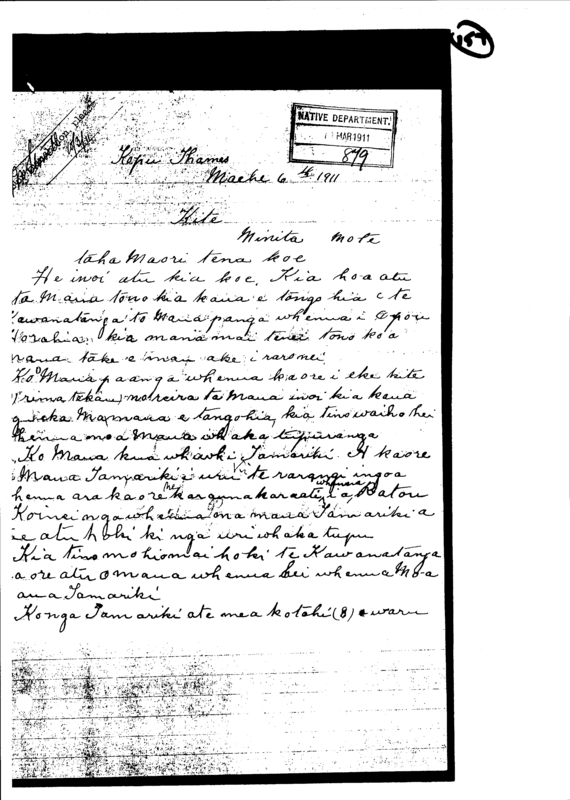 157
For translation please
13/3/11
NATIVE DEPARTMENT.
MAR 1911
879
Kopu Thames
Maehe 6th 1911
Kite
Minita mote
taha Maori tena koe
He inoi atu kia koe. Kia hoa atu
ta Maua tono kia kaua e tangohia e te
Kawanatanga to Maua panga whenua i
kia mana mai tenei tono koa
take e mau ake i raro nei
Ko Maua paanga whenua kaore i eke kite
rima tekau, noreira ta Maua inoi kia kaua
e tangohia, kia tino waiho hei
whenua moa Maua whaka tupuranga
Ko Maua kua whawki Tamariki. A kaore
Maua Tamariki i uru ki te rarangi ingoa
henua ara kaore he karauna karaati whenua i a Ratou
Koinei nga whenua ona maua Tamariki a
atu hoki ki nga uri whaka tupu
Kia tino mohio mai hoki te Kawanatanga
aore atu o maua whenua hei whenua Mo a
aua Tamariki
Ko nga Tamariki a te mea kotahi (8) e waru